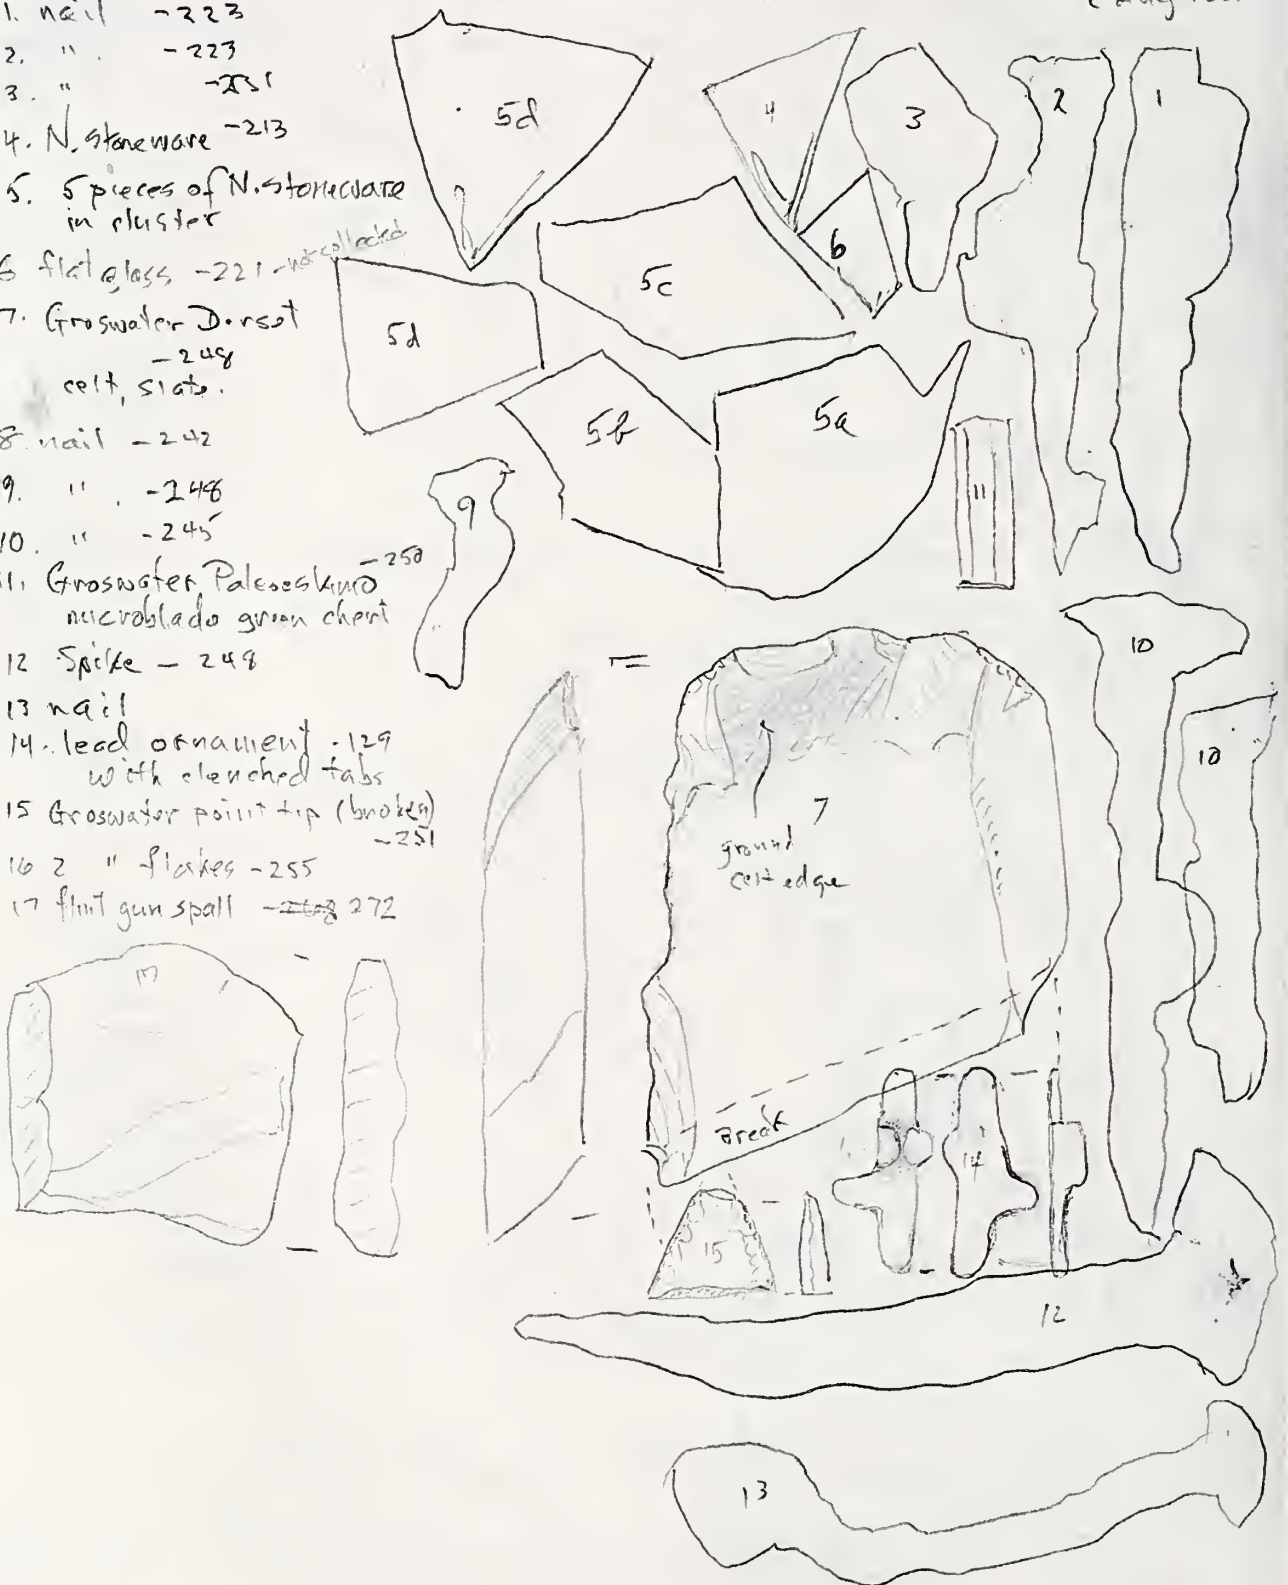 1. nail -223
2. " . -223
3. " -251
4. N. stoneware -213
5. 5 pieces of N. stoneware
in cluster
6 flat glass -221 - not collected
7. Groswater Dorset
-248
celt, slate.
8. nail -242
9. " . -248
10. " -245
11. Groswater Paleoeskimo -250
microblade green chert
12 Spike - 248
13 nail
14. lead ornament -129
with clenched tabs
15 Groswater point tip (broken)
-251
16 2 " flakes -255
17 flint gun spall 272
5d
4
3
2
1
5c
6
5d
5b
5a
11
9
10
10
7
ground
celt edge
Break
14
15
17
12
13